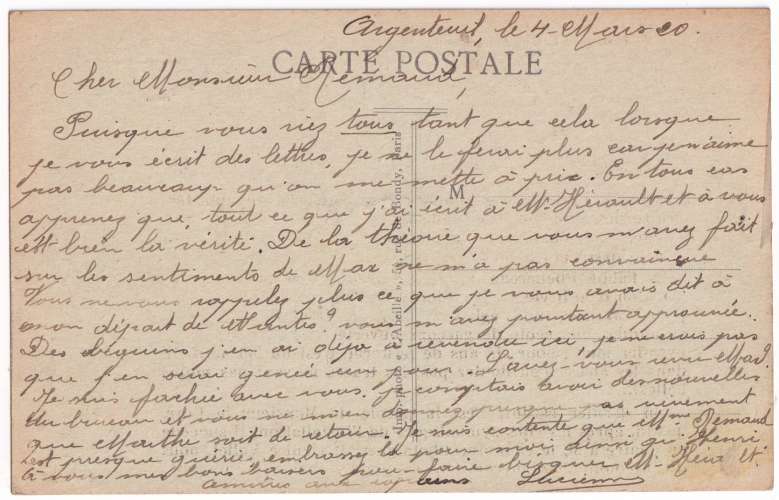 Argenteuil, le 4 Mars 20.
CARTE POSTALE
Cher Monsieur Remaud,
Puisque vous riez tous tant que cela lorsque
je vous écrit des lettres, je ne le ferai plus car je n'aime
pas beaucoup qu'on me mette à prix. En tous cas
apprenez que tout ce que j'ai écrit à Mr Hérault et à vous
est bien la vérité. De la théorie que vous m'avez fait
sur les sentiments de Max ne m'a pas convaincue
Vous ne vous rappelez plus ce que je vous avais dit à
mon départ de Mantes? vous m'avez pourtant approuvée.
Des béguins j'en ai déjà ici, je ne crois pas
que j'en serai genée un jour. L'avez-vous revu Max?
Je suis fachée avec vous, je comptais avoir des nouvelles
du bureau et vous ne m'en donnez presque pas vivement
que Marthe soit de retour. Je suis contente que Mme Remaud
est presque guérie, embrassez la pour moi ainsi qu'Henri
à vous mes bons baisers pour faire bisquer Mr
amitiés aux copains Lucienne
Imp-photo « L'Abeille », rue de Bondy, Paris
M